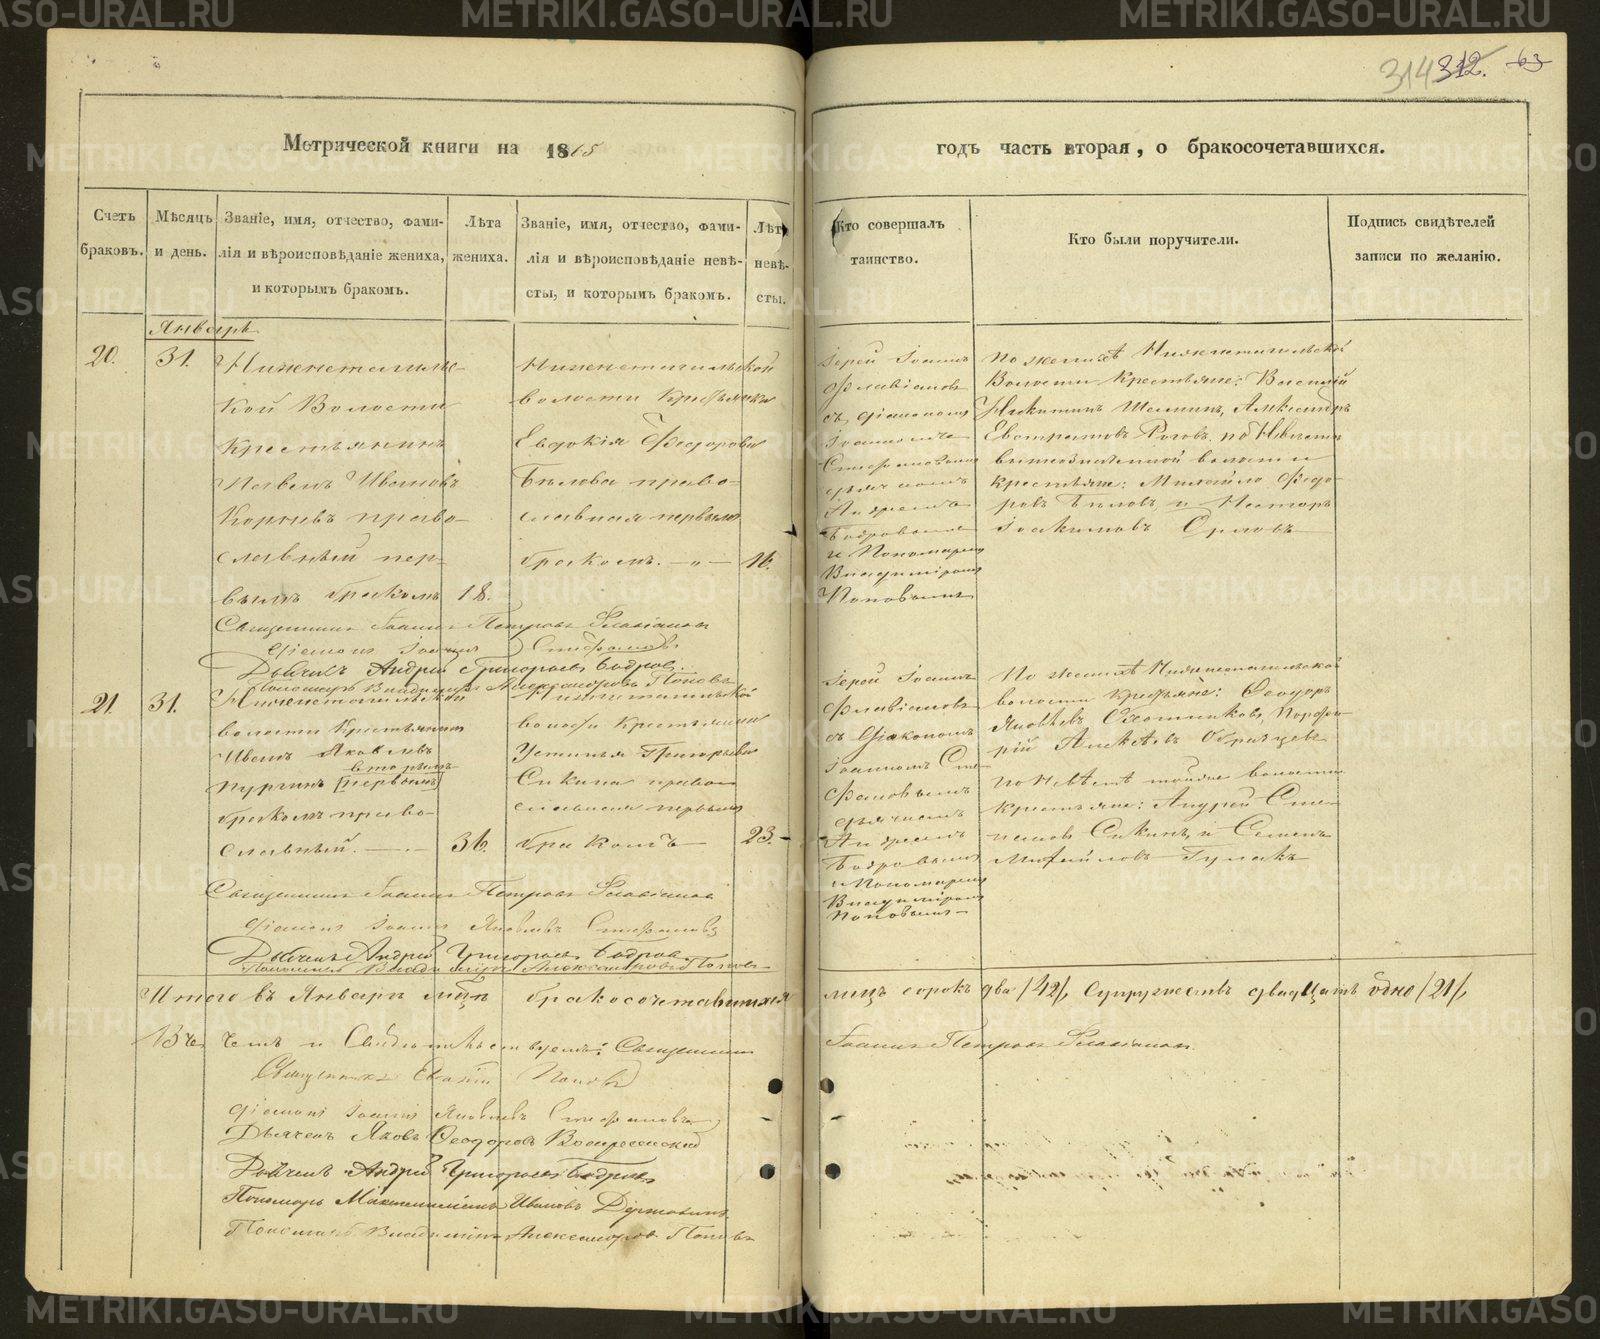 314 312. 63
Метрической книги на 1865
годъ часть вторая, о бракосочетавшихся.
Счетъ браковъ.
Мѣсяцъ и день.
Званіе, имя, отчество, фами-
лія и вѣроисповѣданіе жениха,
и которымъ бракомъ.
Лѣта
жениха.
Званіе, имя, отчество, фами-
лія и вѣроисповѣданіе невѣ-
сты, и которымъ бракомъ.
Лѣта
невѣ-
сты.
Кто совершалъ
таинство.
Кто были поручители.
Подпись свидѣтелей
записи по желанію.
Январь
20.
31.
Нижнетагильс-
кой Волости
Крестьянинъ
Павелъ Ивановъ
Корневъ право-
славный пер-
вымъ бракомъ
18.
Нижнетагильской
волости Крестьянка
Евдокія Федорова
Бѣлова право-
славная первымъ
бракомъ. — „ —
16.
Іерей Іоаннъ
Флавіановъ
съ діакономъ
Іоанномъ
Стефановымъ
дьячкомъ
Андреемъ
Бодровымъ
и Пономаремъ
Владиміромъ
Поповымъ
По женихѣ Нижнетагильской
Волости Крестьяне: Василій
Никитинъ Шаминъ, Александръ
Евстратовъ Роговъ, по Невѣстѣ
вышеозначенной волости
крестьяне: Михайло Федо-
ровъ Бѣловъ, и Несторъ
Іоакимовъ Орловъ
Священникъ Іоаннъ Петровъ Флавіановъ
Діаконъ Іоаннъ Стефановъ
Дьячекъ Андрей Григорьевъ Бодровъ.
Пономарь Владимиръ Александровъ Поповъ
21.
31.
Нижнетагильской
волости Крестьянинъ
Иванъ Яковлевъ
вторымъ
Пургинъ [первымъ]
бракомъ право-
славный. —
36.
Нижнетагильской
волости Крестьянка
Устинья Григорьева
Сикина право-
славная первымъ
бракомъ —
23. -
Іерей Іоаннъ
Флавіановъ
съ Діакономъ
Іоанномъ Сте-
фановымъ
дьячкомъ
Андреемъ
Бодровымъ
и Пономаремъ
Владиміромъ
Поповымъ —
По женихѣ Нижнетагильской
волости крестьяне: Феодоръ
Яковлевъ Охотниковъ, Порфи-
рій Алексѣевъ Образцовъ
по Невѣстѣ тойже волости
крестьяне: Андрей Сте-
пановъ Сикинъ, и Семенъ
Михайловъ Гулакъ
Священникъ Іоаннъ Петровъ Флавіановъ
Діаконъ Іоаннъ Яковлевъ Стефановъ
Дьячекъ Андрей Григорьевъ Бодровъ
Пономарь Владимиръ Александровъ Поповъ
Итого въ Январѣ мцѣ бракосочетавшихся
лицъ сорокъ два /42/, супружествъ двадцать одно /21/,
Въ чемъ и Свидѣтельствуемъ: Священникъ
Іоаннъ Петровъ Флавіановъ
Священникъ Поповъ
Діаконъ Іоаннъ Яковлевъ Стефановъ
Дьячекъ Яковъ Феодоровъ Воскресенскій
Дьячекъ Андрей Григорьевъ Бодровъ
Пономарь Максимиліанъ Ивановъ Державинъ
Пономарь Владимиръ Александровъ Поповъ
METRIKI.GASO-URAL.RU